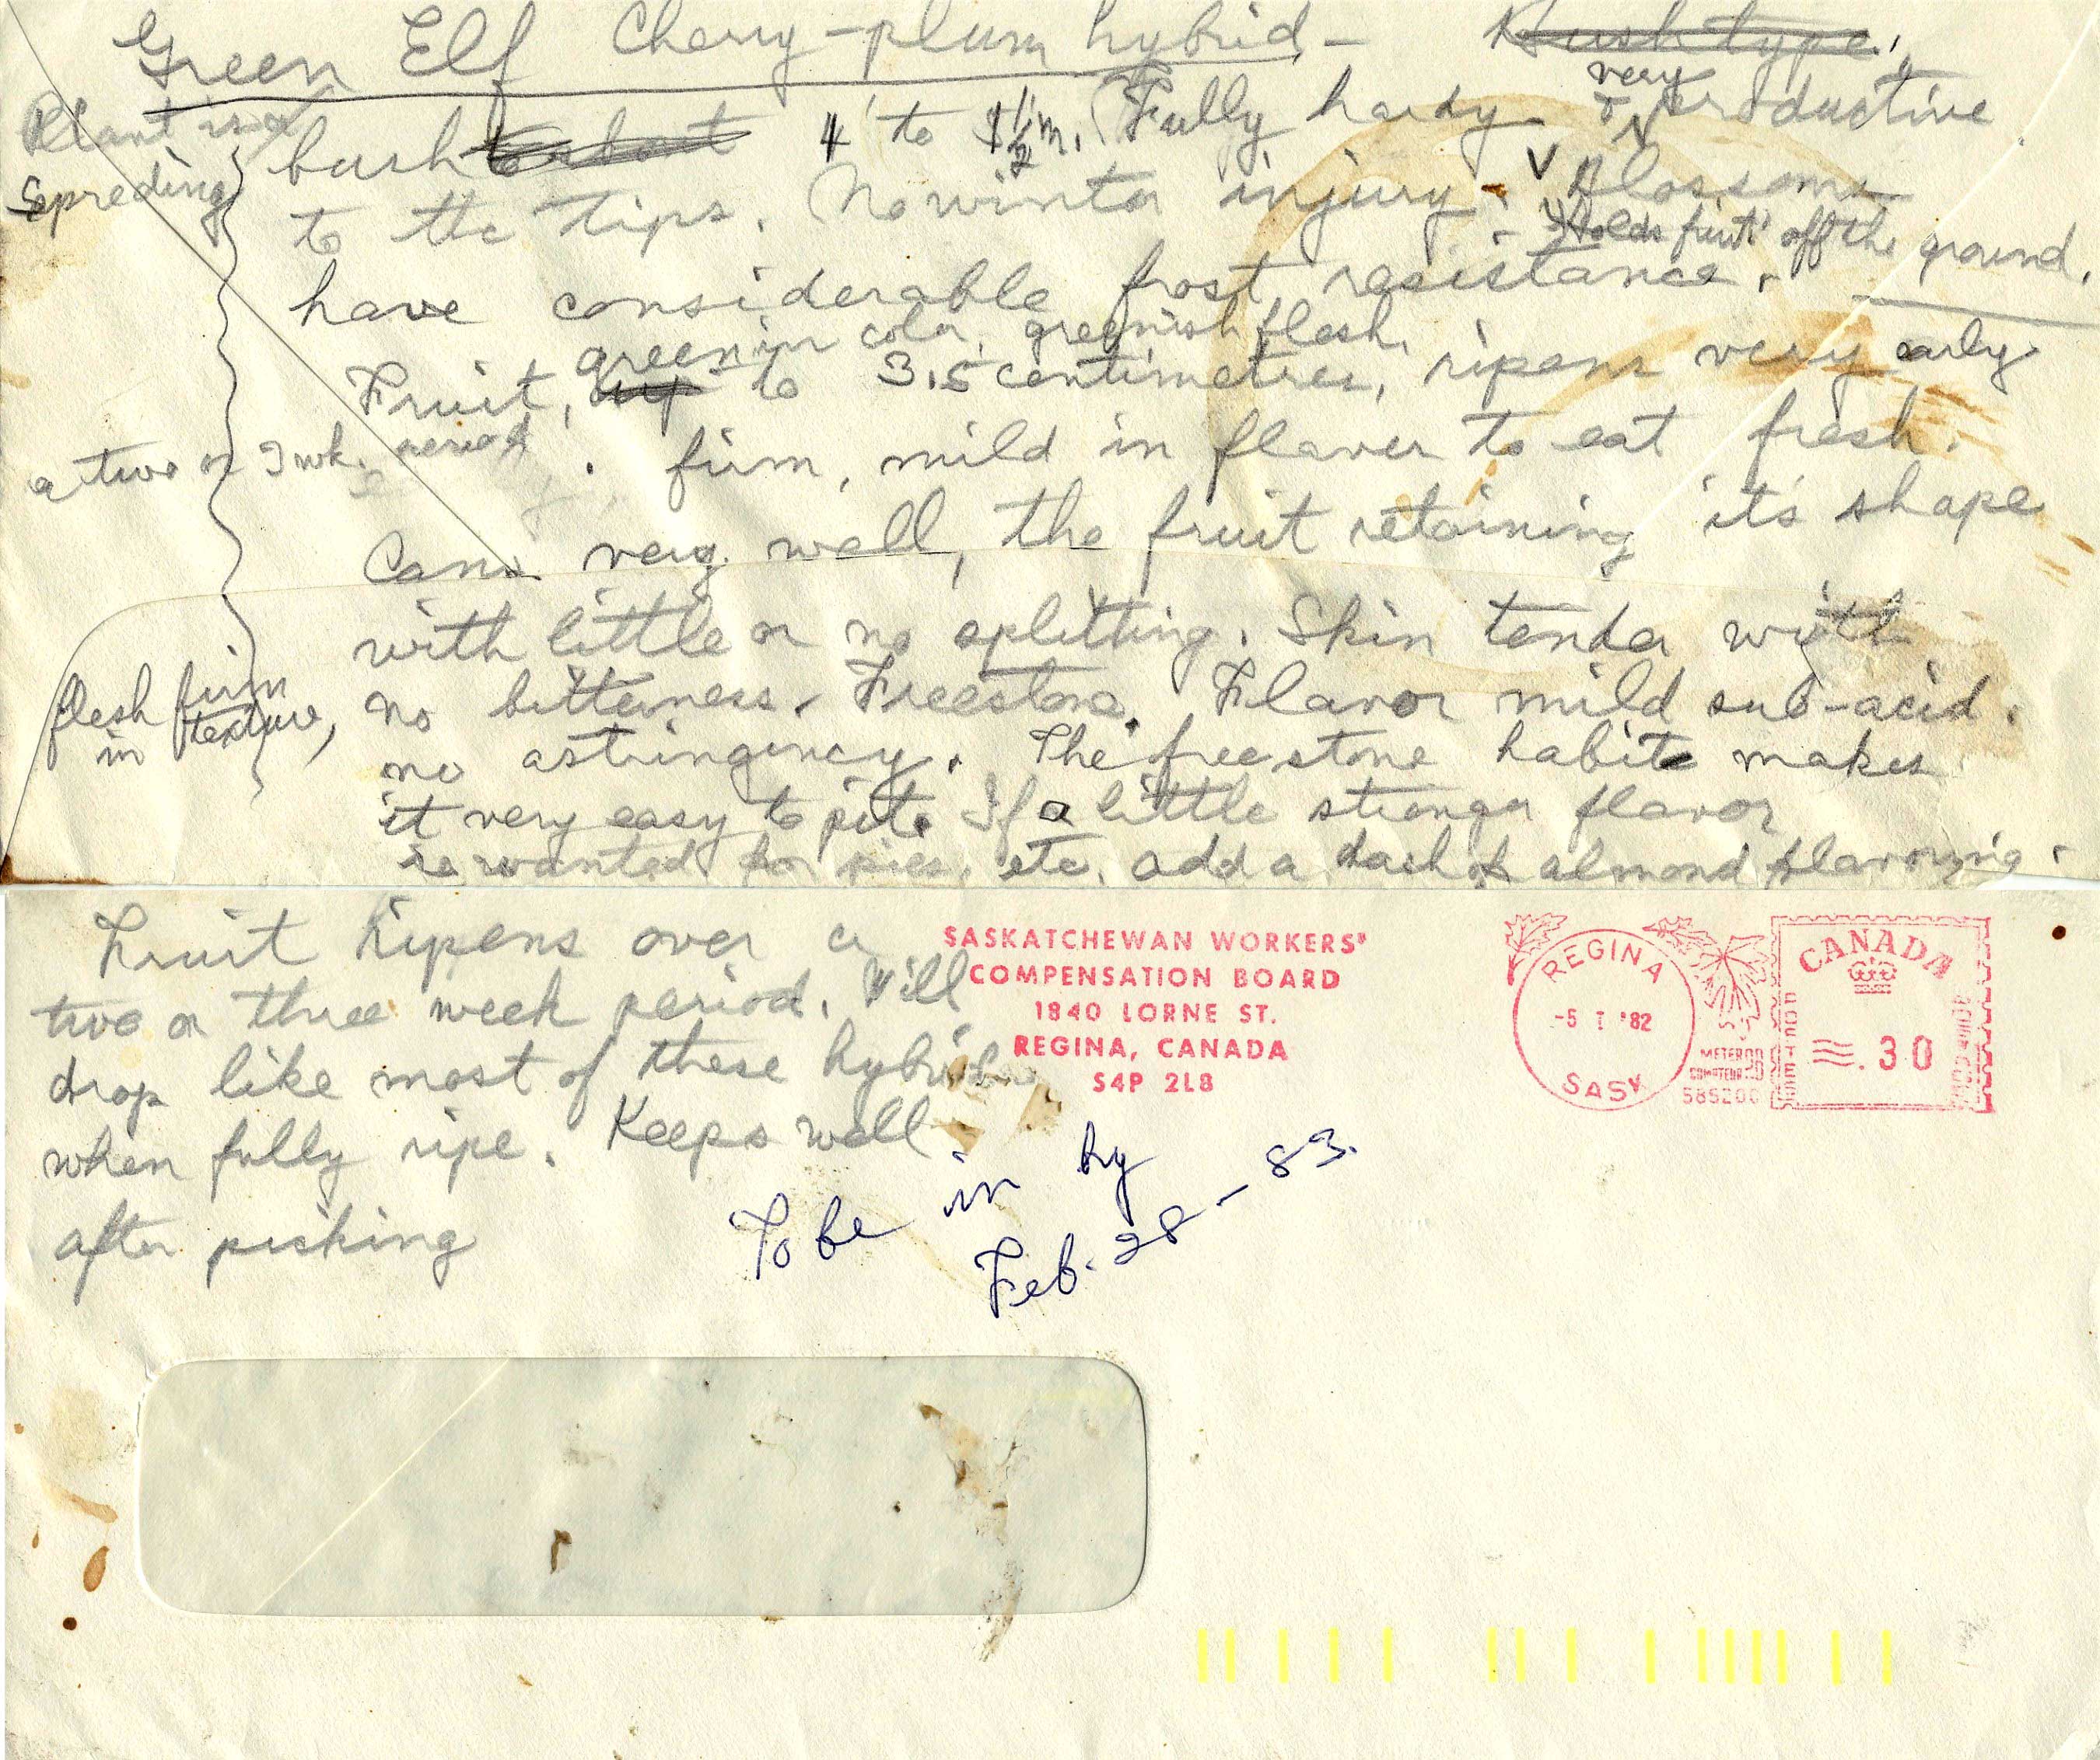 Green Elf Cherry-plum hybrid - Bush type.
Plant is a
Spreding
bush 4' to 1 1/2 m. Fully hardy. very productive
to the tips. No winter injury. Blossoms
Holds fruit off the ground.
have considerable frost resistance.
green in color, greenish flesh,
Fruit, up to 3.5 centimetres, ripens very early
a two or 3 wk. period. firm, mild in flavor to eat fresh.
Cans very well, the fruit retaining it's shape
with little or no splitting. Skin tender with
flesh firm
in texture,
no bitterness. Freestone. Flavor mild sub-acid.
no astringency. The freestone habit makes
it very easy to pit. If a little stronger flavor
is wanted for pies, etc. add a dash of almond flavoring.
Fruit ripens over a
two or three week period. Will
drop like most of these hybrids
when fully ripe. Keeps well
after picking
SASKATCHEWAN WORKERS'
COMPENSATION BOARD
1840 LORNE ST.
REGINA, CANADA
S4P 2L8
REGINA
-5 I '82
SASK
CANADA
.30
To be in by
Feb. 28 - 83.